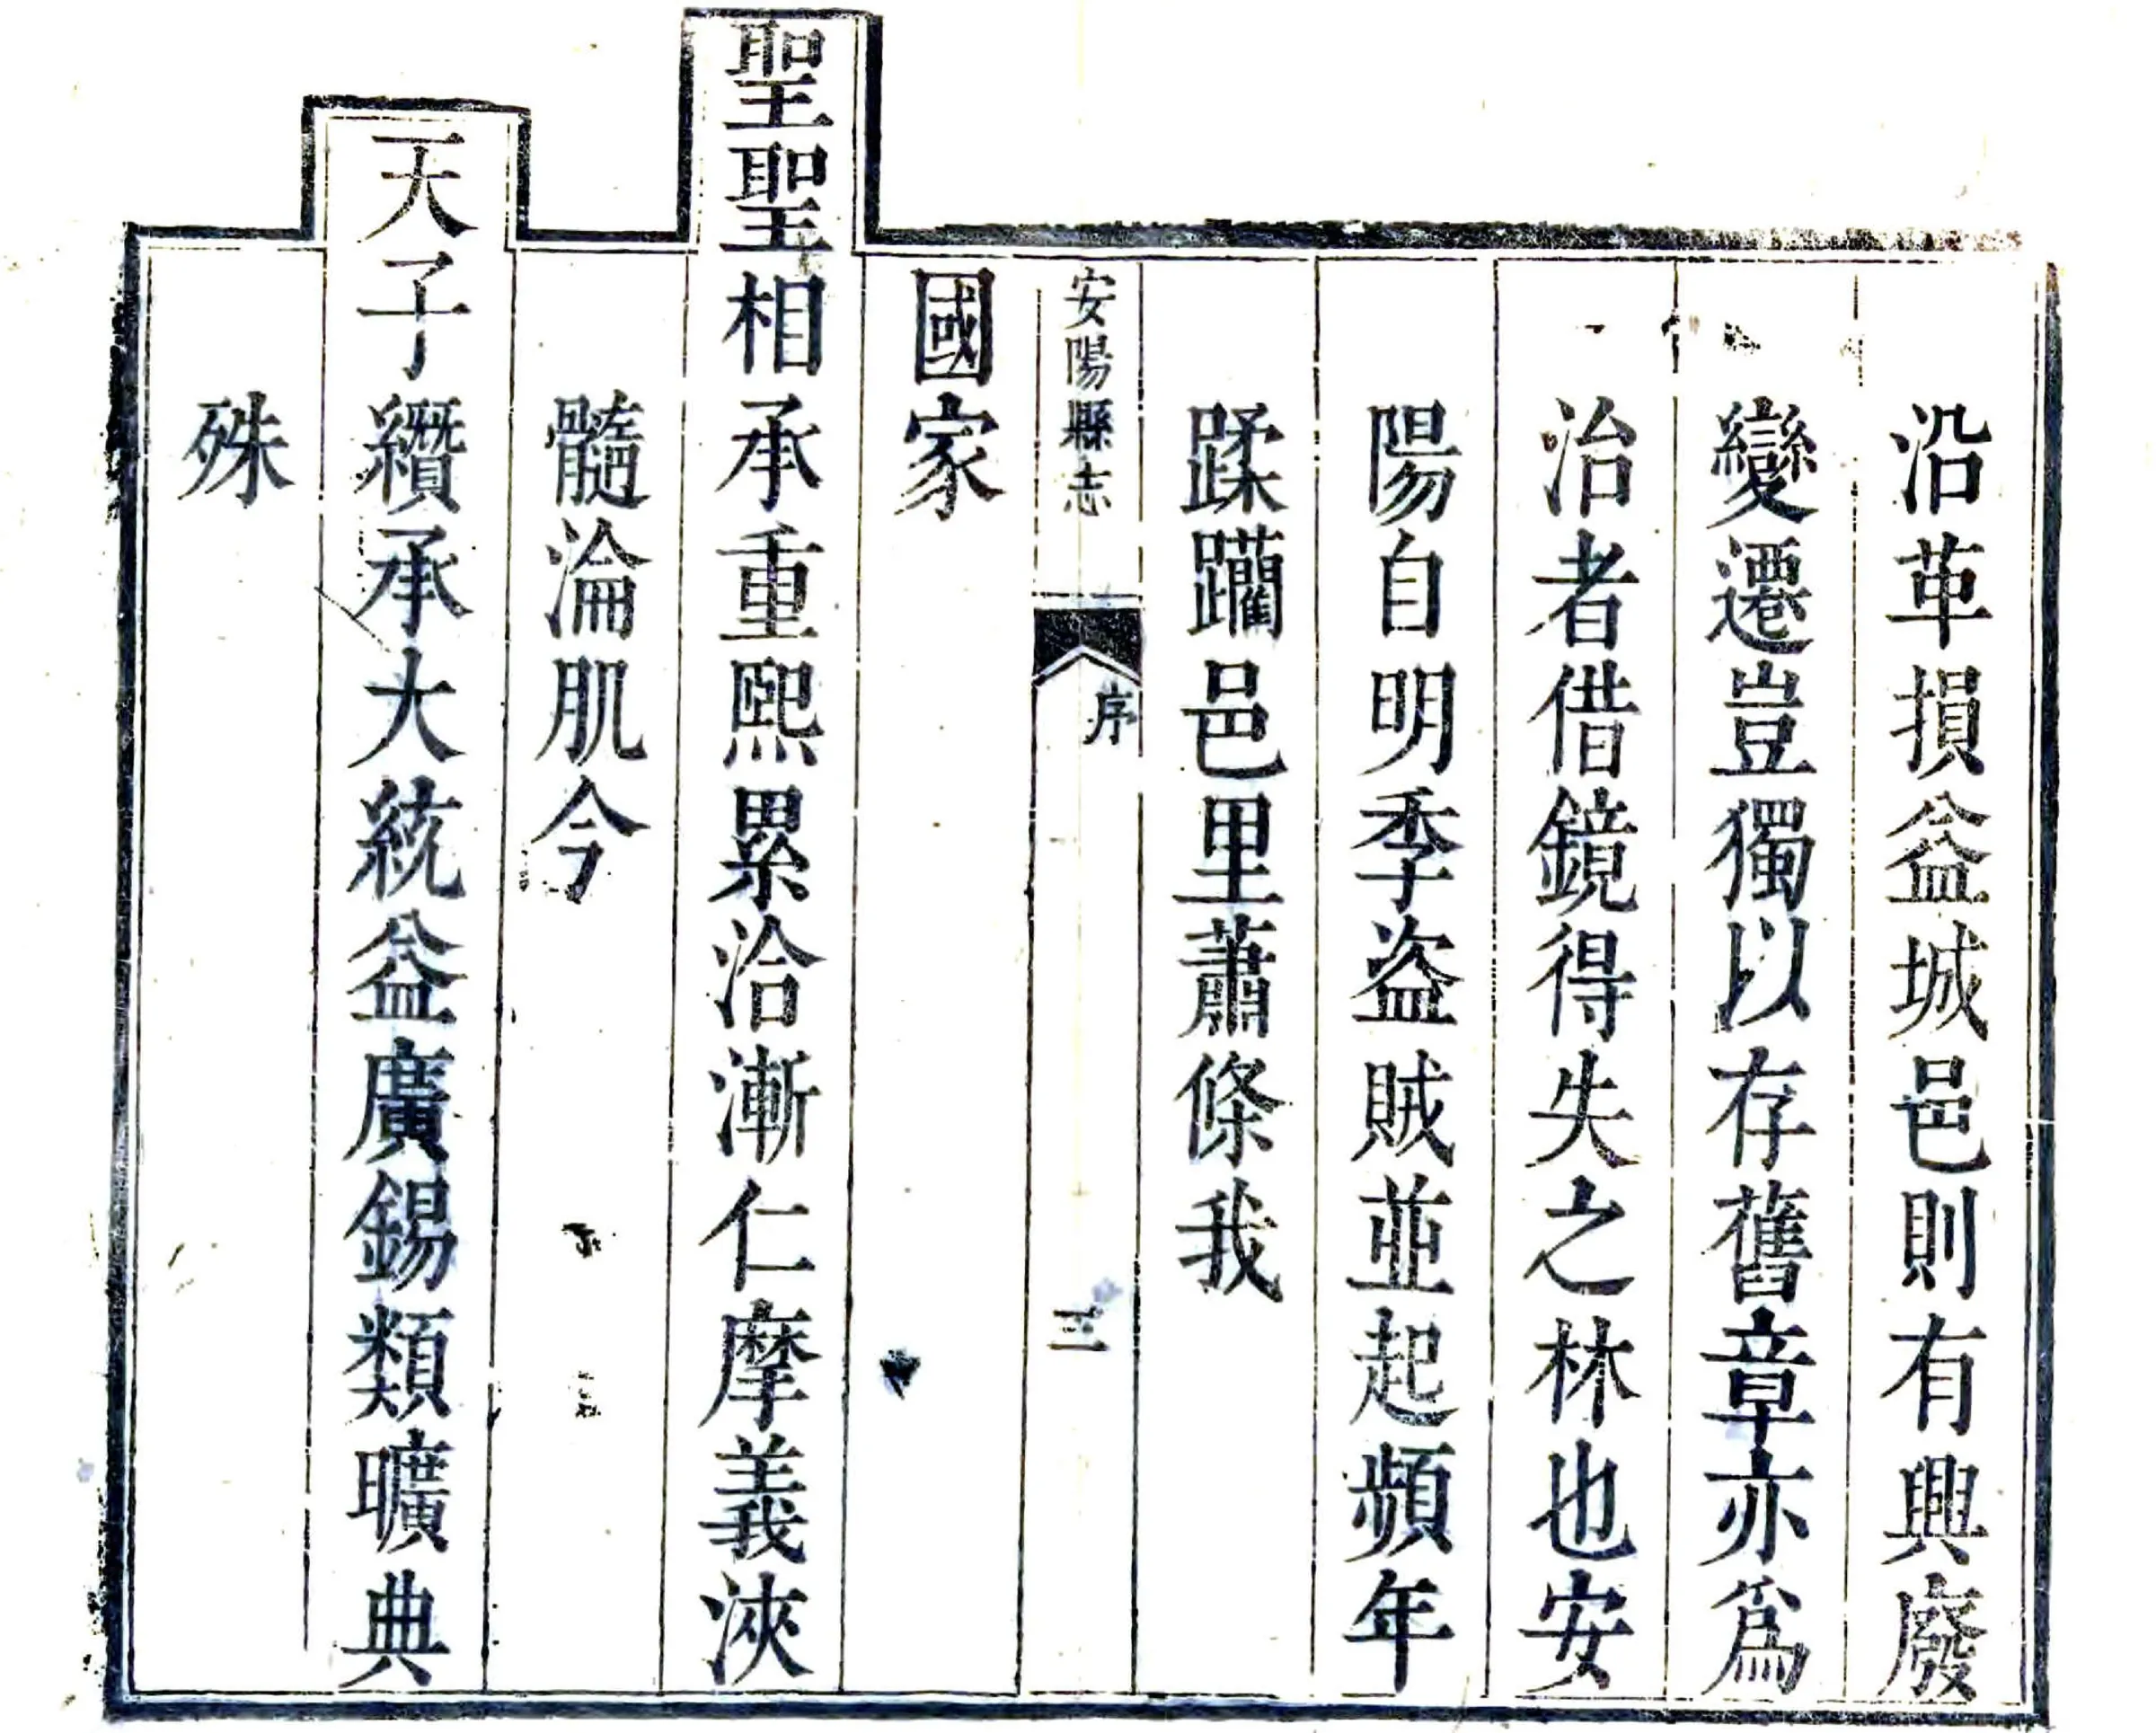 沿革損益城邑則有興廢
變遷豈獨以存舊章亦爲
治者借鏡得失之林也安
陽自明季盗賊並起頻年
蹂躪邑里蕭條我
安陽縣志
序
三
國家
聖聖相承重熙累洽漸仁摩義浹
髓淪肌今
天子纘承大統益廣錫類曠典
殊